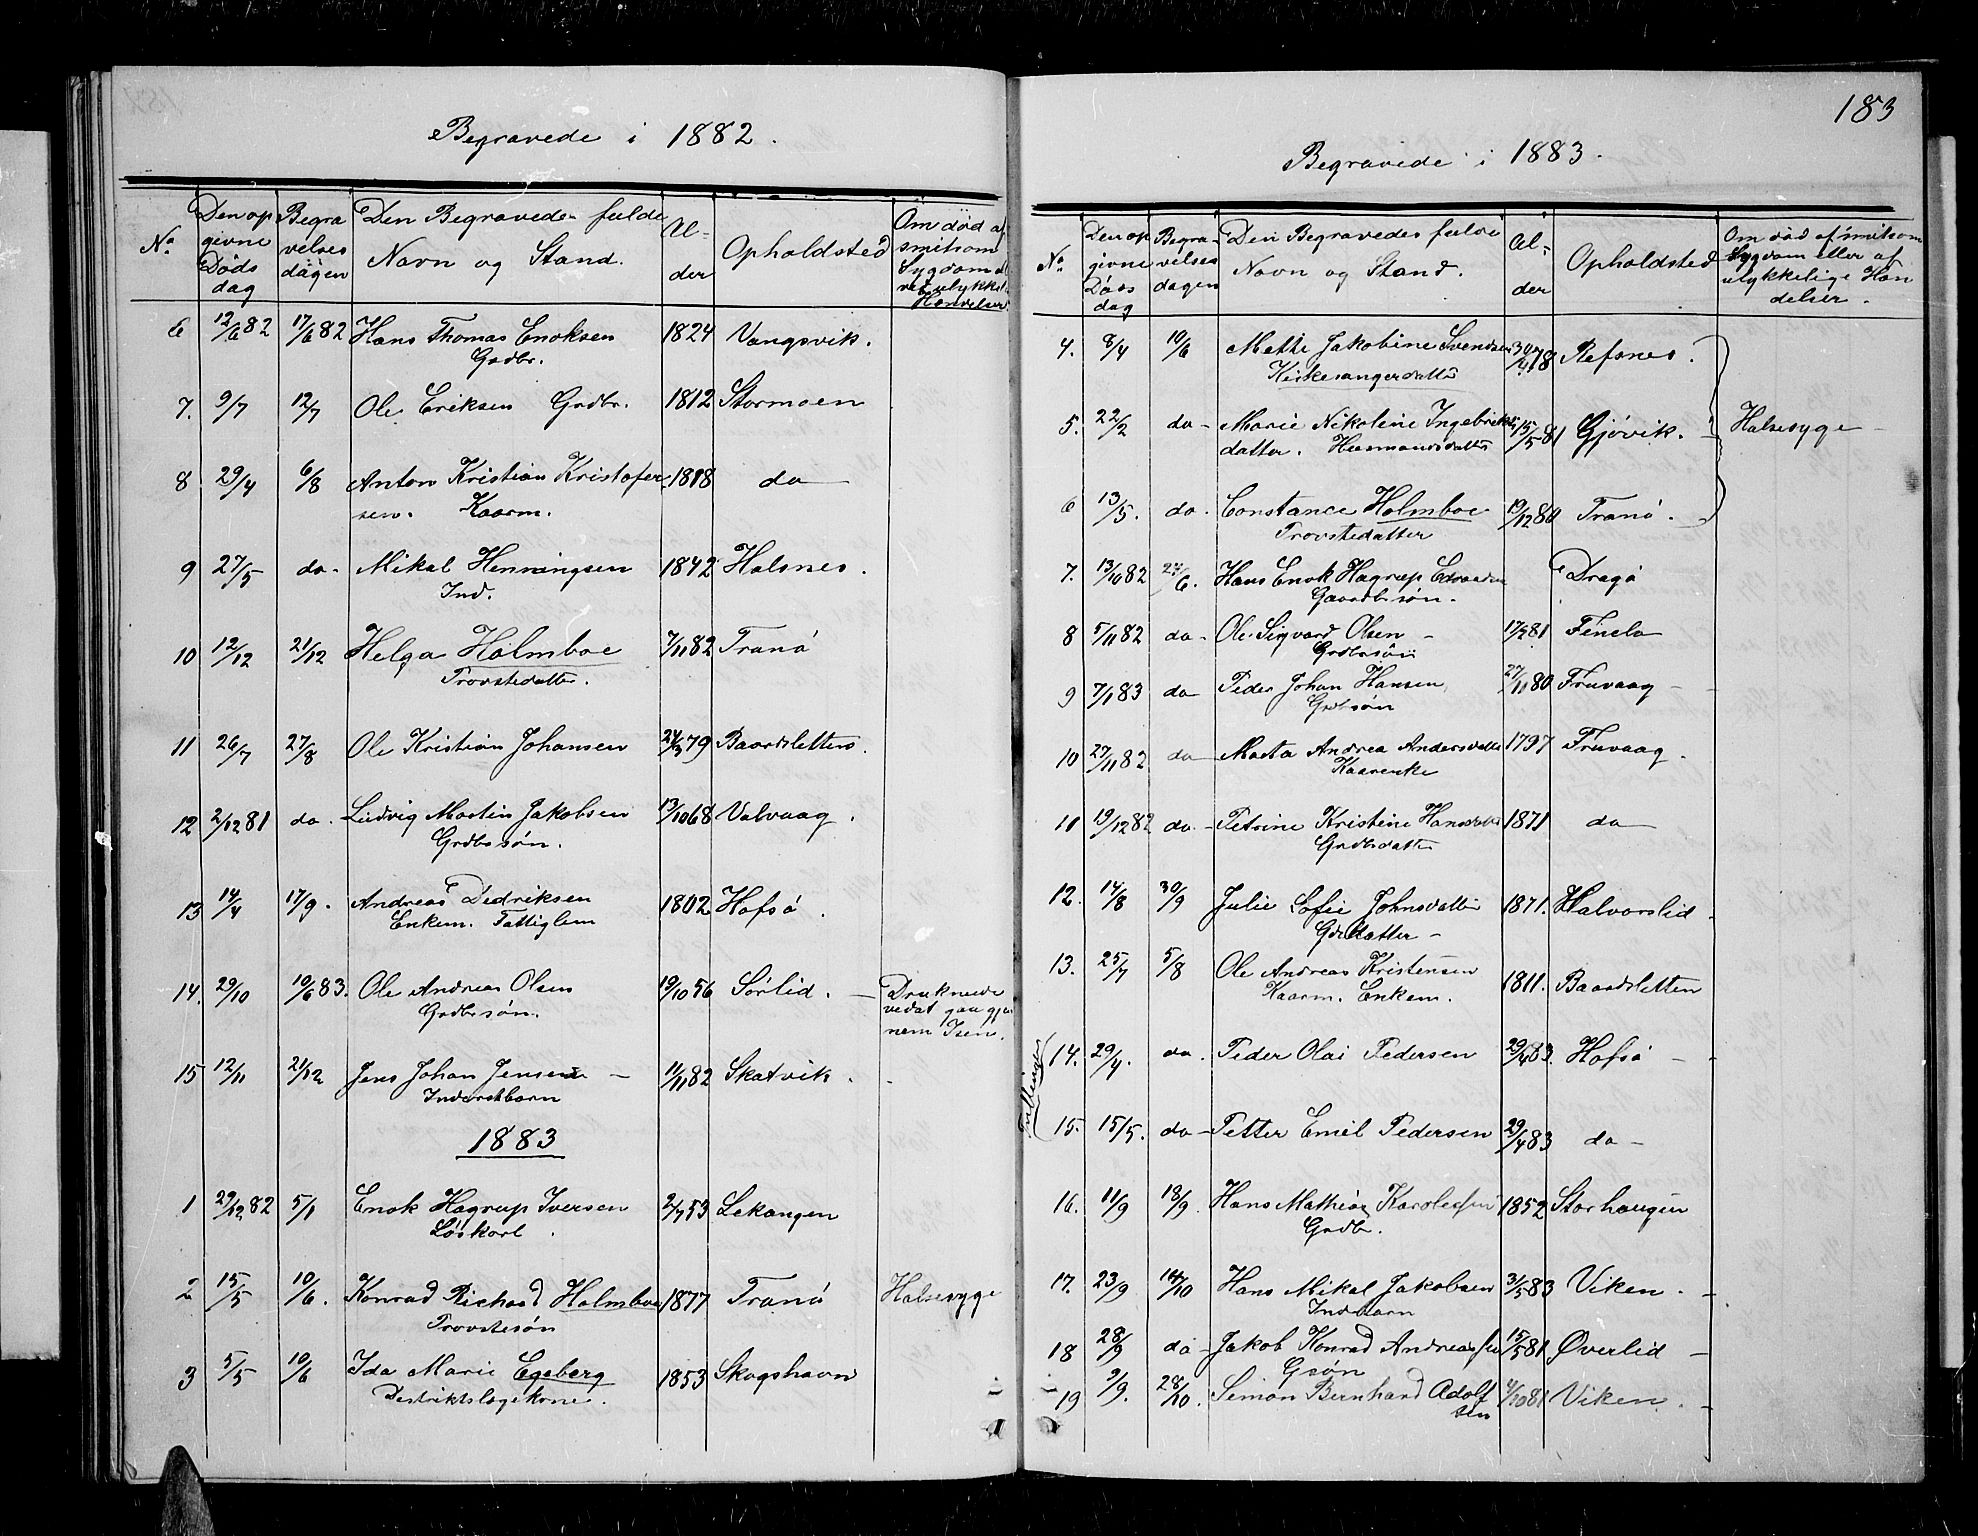 Begravede i 1882.
No. Den op givne Døds dag Begra velses dagen Den Begravedes fulde Navn og Stand. Al- der Opholdsted Om død af smitsom Sygdom
6 12/6 82 17/6 82 Hans Thomas Enoksen 1824 Vangsvik.
Grdbr.
7. 9/7 12/7 Ole Eriksen Grdbr. 1812 Stormoen
8 29/4 6/8 Anton Kristian Kristofer 1818 do
sen. Kaarm.
9 27/5 do - Mikal Henningsen 1842 Halsnes.
Ind.
10 12/12 21/12 Helga Holmboe 7/11 82 Tranö
Provstedatter.
11 26/7 27/8 Ole Kristian Johansen 79 Baardsletten.
12 2/12 81 do. Ludvig Martin Jakobsen 13/10 68 Valvaag.
Grdbssøn.
13 14/4 17/9. Andreas Didriksen 1802 Hofsö.
Enkem. Fattiglem
14. 29/10 10/6 83. Ole Andreas Olsen 19/10 56 Sörlid. — Druknede
Grdbrsøn. vedat gaa gjen
nem Isen.
15 12/11 21/12 Jens Johan Jensen — 11/11 82 Skatvik.
Inderstbarn
1883
1 29/12 82 5/1 Enok Hagrup Iversen 2/7 53 Lekangen
Løskarl.
2 15/5 10/6. Konrad Richard Holmboe 1877 Tranö Halsesyge
Provstesøn
3 5/5 10/6 Ida Marie Egeberg 1853 Skogshavn
Destriktslægekone.
183
Begravede i 1883.
No. Den op givne Døds dag Begra- velses dagen Den Begravedes fulde Navn og Stand. Al- der Opholdsted Om død af smitsom Sygdom eller af ulykkelige Hæn delser.
4. 8/4 10/6 Mette Jakobine Svendsen 78 Refsnes.
Kirkesangerdatter
5. 22/2 do - Marie Nikoline Ingebrikt 15/5 81 Gjövik. - Halsesyge -
datter. Husmandsdatter
6 13/5. do. Constance Holmboe 19/12 80 Tranö.
Provstedatter
7. 13/10 82 24/6. Hans Enok Hagrup Dragö
Gaardbrsön.
8 5/11 82 do - Ole Sigvard Olsen - 17/2 81 Finela
Grdbrsön
9 7/1 83 do Peder Johan Hansen 27/11 80 Fruvaag -
Grdbsøn
10 27/11 82 do Marta Andrea Andersdatter 1797 Fruvaag.
Kaarenke
11 19/12 82 do. - Petrine Kristine Hansdatter 1871 do
Grdbsdatter
12. 14/8 30/9 Julie Sofie Johnsdatter 1871. Halvorslid.
Grdbdatter -
13. 25/7 5/8 Ole Andreas Kristensen 1811. Baardsletten
Kaarm. Enkem.
Tvillinger
14. 29/4. do. Peder Olai Pedersen 29/4 83. Hofsö -
15. 15/5. do - Petter Emil Pedersen 29/4 83 do -
16. 11/9 18/9. Hans Mathias Karolesen 1852 Storhaugen
Grdbr.
17. 23/9 14/10 Hans Mikal Jakobsen 31/5 83 Viken. -
Indbarn
18 28/9 do Jakob Konrad Andreassen 15/5 81 Øverlid -
Gsøn
19 9/9. 28/10. Simon Bernhard Adolf 4/10 81 Viken. -
sen